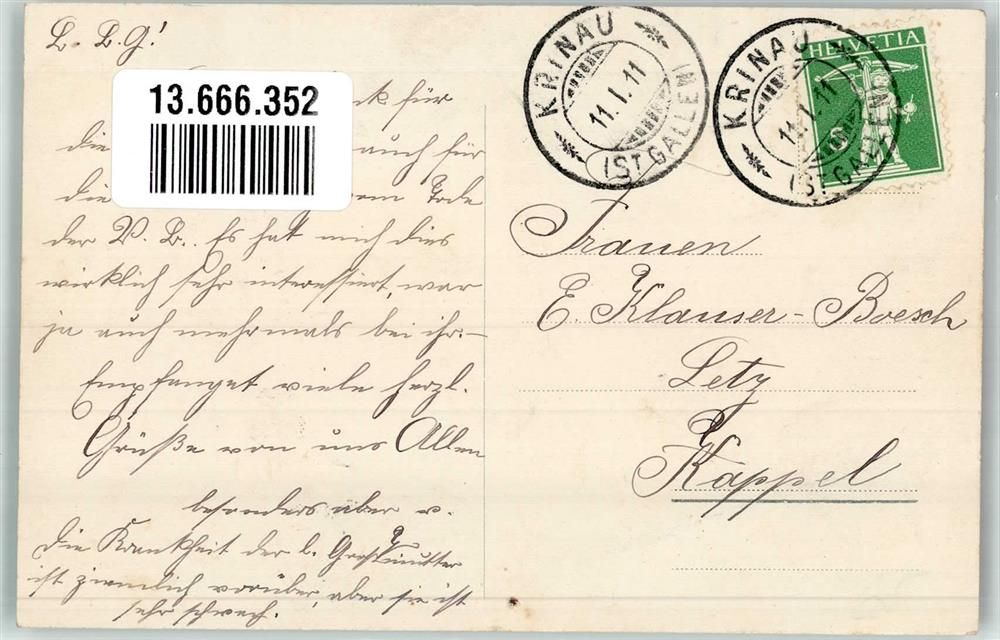 L. B. G!
13.666.352
für
die auch für
die Tode
der V. B. Es hat mich dies
wirklich sehr interessiert, war
ja auch mehrmals bei ihr.-
Empfanget viele herzl.
Grüße von uns Allen
besonders über
die Krankheit der l. Großmutter
ist ziemlich vorüber, aber sie ist
sehr schwach.
KRINAU
11.I.11
(ST GALLEN)
KRINAU
11.I.11
(ST GALLEN)
HELVETIA
5
Frauen
E. Klauser-Boesch
Letz
Kappel